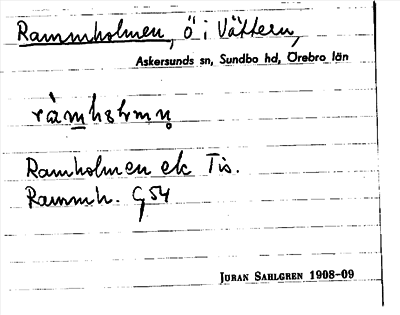 Rammholmen, ö i Vättern,
Askersunds sn, Sundbo hd, Örebro län
Ramholmen ek Tis.
Rammh. G54
Juran Sahlgren 1908-09